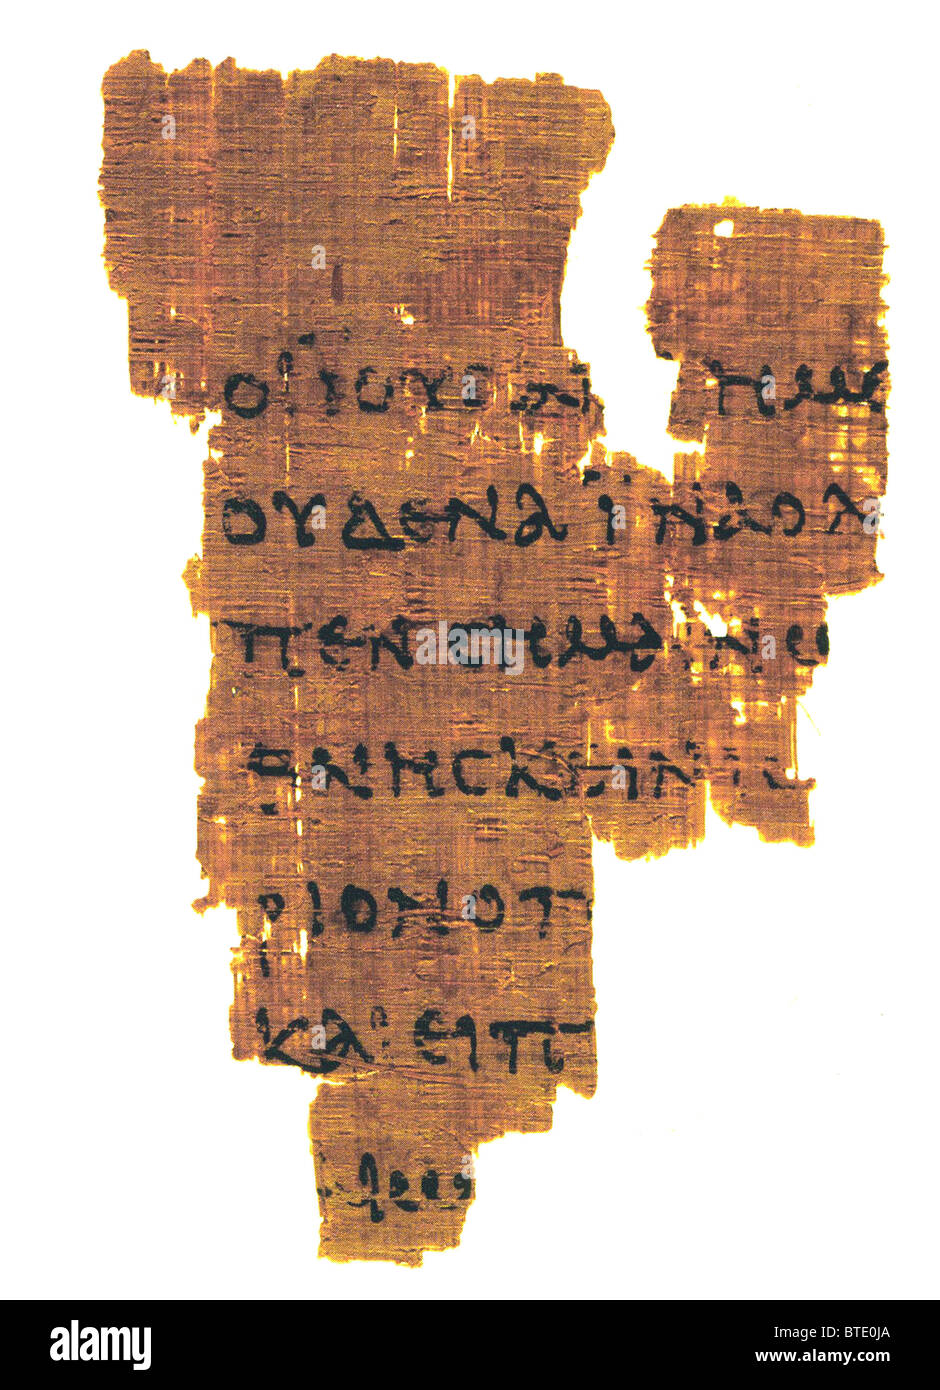 ΟΙ ΙΟΥΔΑΙ ΗΜΕ
ΟΥΔΕΝΑ ΪΝΑ Ο Λ
ΠΕΝ CΗΜΑΙΝΩ
ΘΝΗCΚΕΙΝ ΙC
ΡΙΟΝ Ο Π
ΚΑΙ ΕΙΠ
alamy
alamy
Image ID: BTE0JA
www.alamy.com